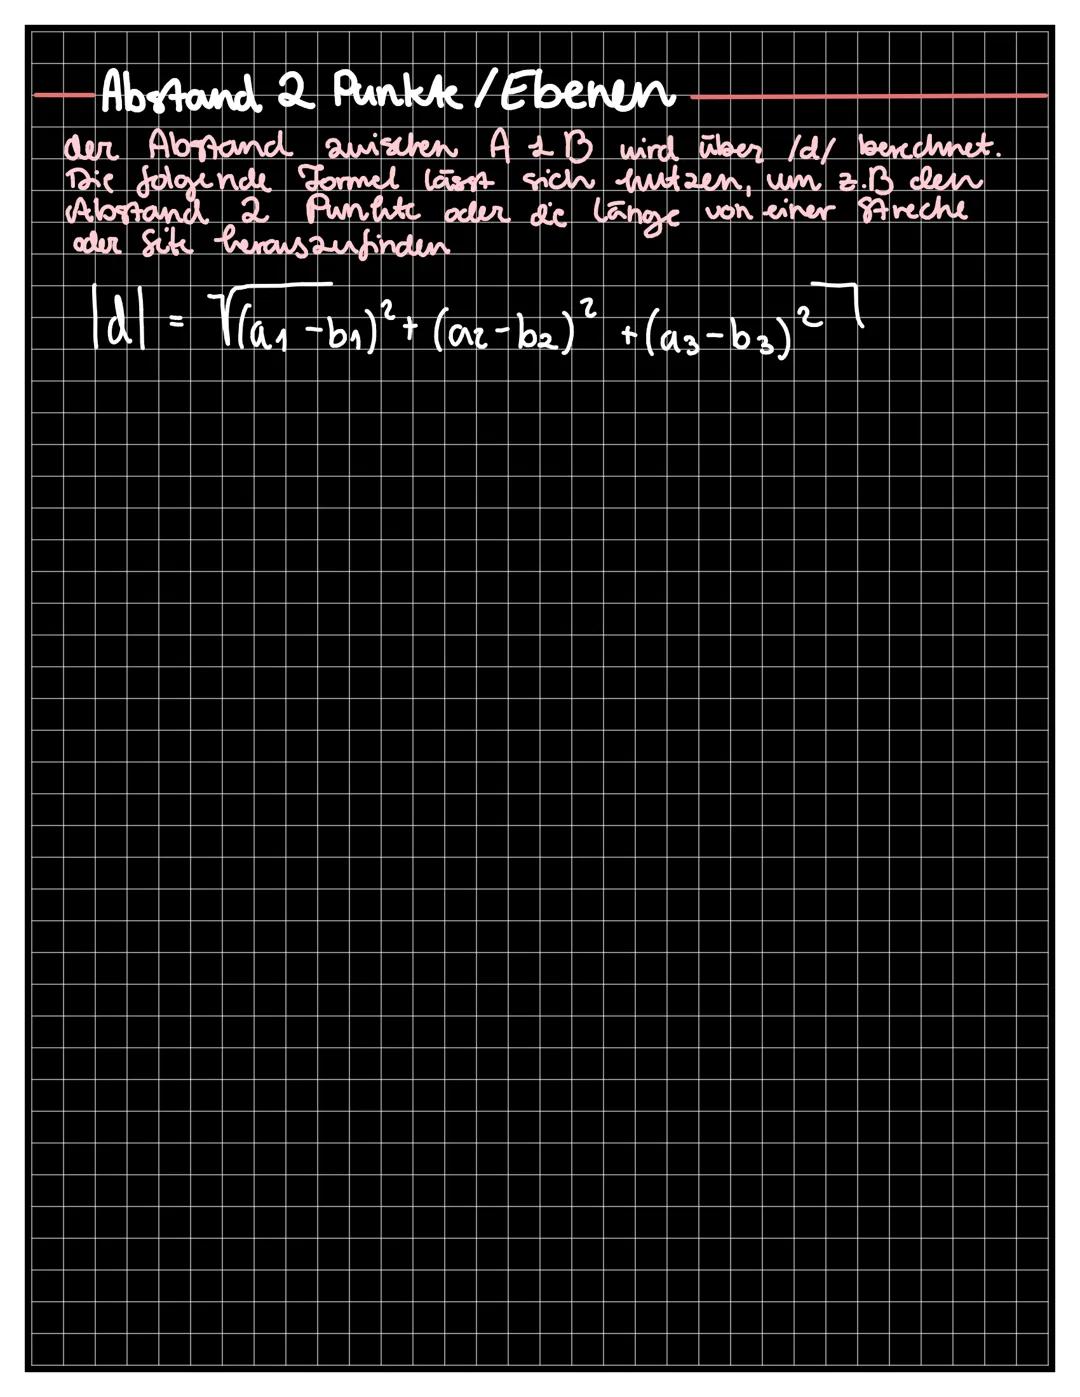 Abstand 2 Punkte/Ebenen
der Abstand zwischen A & B wird über /d/ berechnet.
Die folgende Formel lässt sich nutzen, um z.B den
Abstand 2 Punkte oder die länge von einer Streche
oder Seite herauszufinden
|d| = √(a₁-b₁)² + (a₂-b₂)² + (a₃-b₃)²